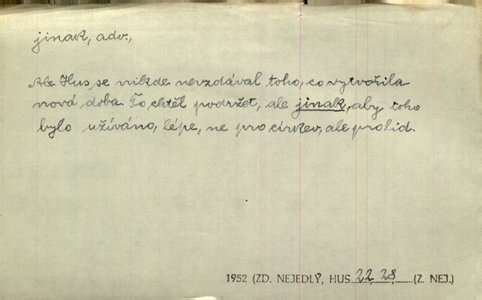 jinak, adv.,
Ale Hus se nikde nevzdával toho, co vytvořila
nová doba. To chtěl podržet, ale jinak, aby toho
bylo užíváno, lépe, ne pro církev, ale pro lid.
1952 (ZD. NEJEDLÝ, HUS 22 28 (Z. NEJ.)